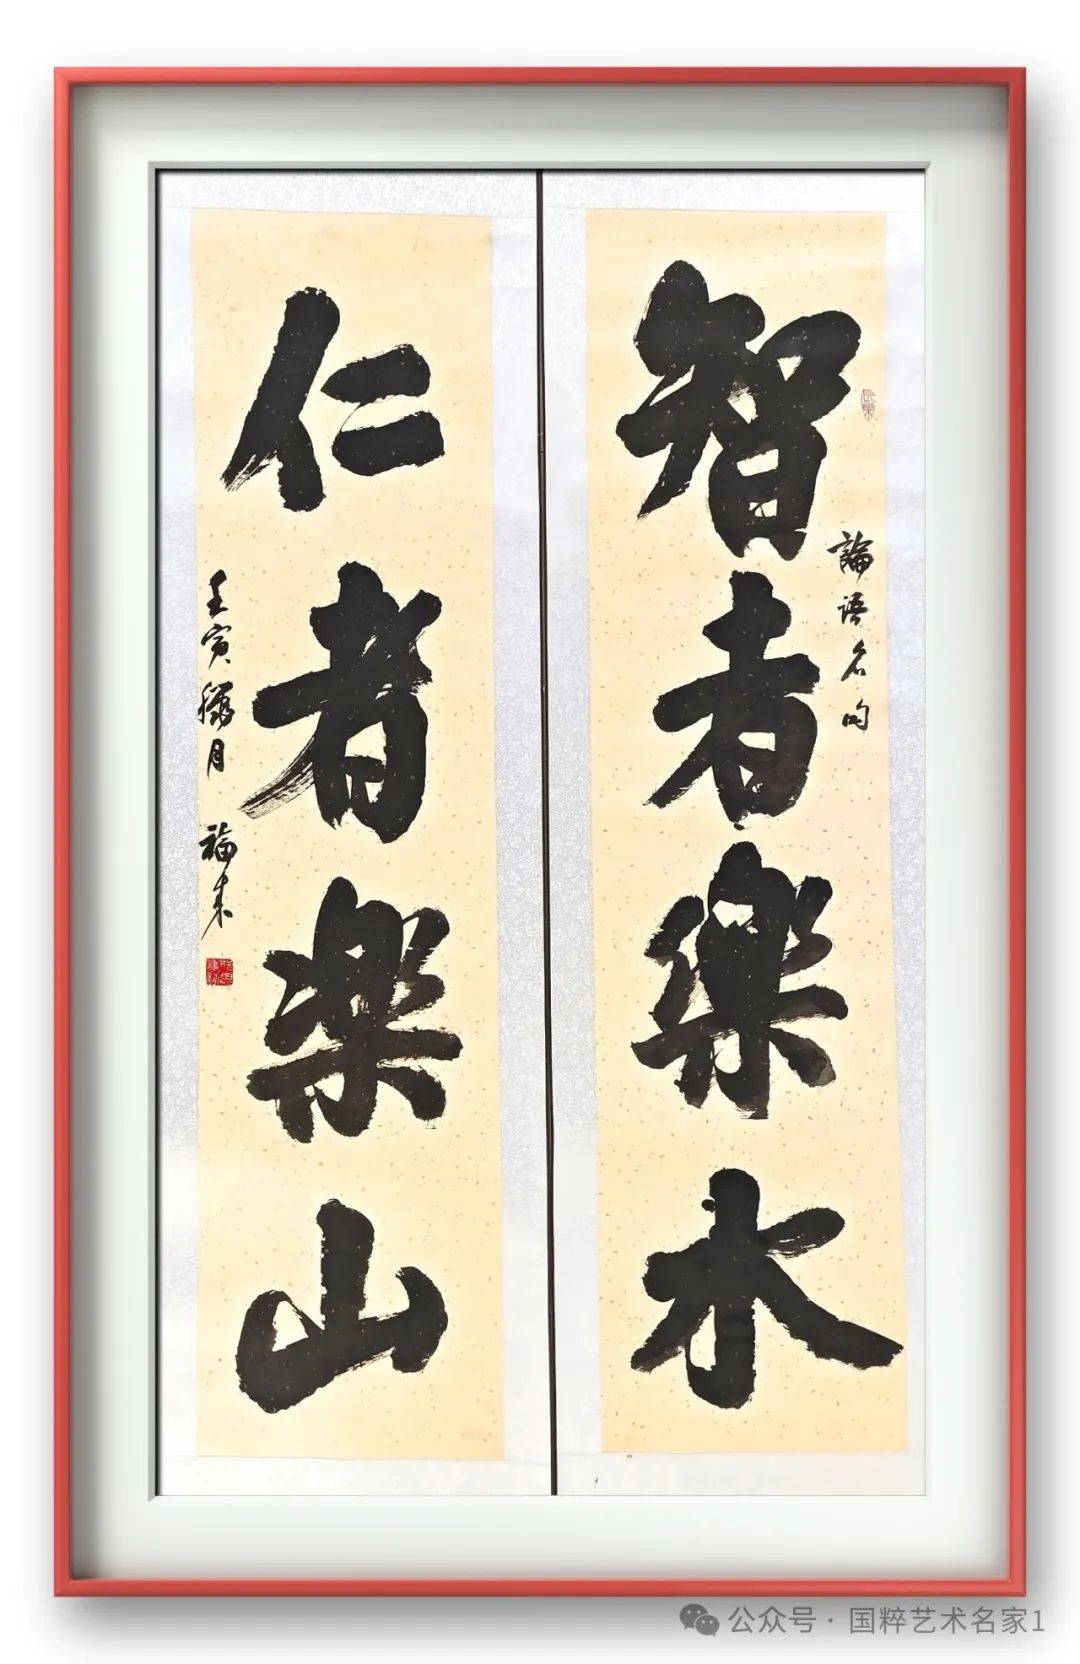 智者樂水
論語名句
仁者楽山
壬寅穐月 福来
公众号 · 国粹艺术名家1